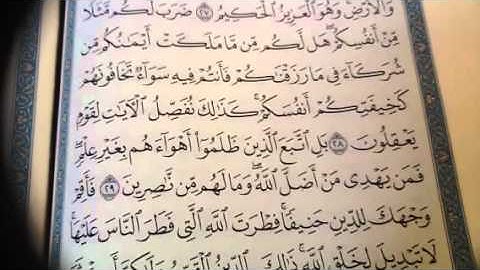 وَالْأَرْضِ وَهُوَ الْعَزِيزُ الْحَكِيمُ ۝٢٧ ضَرَبَ لَكُم مَّثَلًا
مِّنْ أَنفُسِكُمْ ۖ هَل لَّكُم مِّن مَّا مَلَكَتْ أَيْمَـٰنُكُم مِّن
شُرَكَاءَ فِي مَا رَزَقْنَـٰكُمْ فَأَنتُمْ فِيهِ سَوَاءٌ تَخَافُونَهُمْ
كَخِيفَتِكُمْ أَنفُسَكُمْ ۚ كَذَٰلِكَ نُفَصِّلُ الْآيَاتِ لِقَوْمٍ
يَعْقِلُونَ ۝٢٨ بَلِ اتَّبَعَ الَّذِينَ ظَلَمُوا أَهْوَاءَهُم بِغَيْرِ عِلْمٍ ۖ
فَمَن يَهْدِي مَنْ أَضَلَّ اللَّهُ ۖ وَمَا لَهُم مِّن نَّاصِرِينَ ۝٢٩ فَأَقِمْ
وَجْهَكَ لِلدِّينِ حَنِيفًا ۚ فِطْرَتَ اللَّهِ الَّتِي فَطَرَ النَّاسَ عَلَيْهَا ۚ
لَا تَبْدِيلَ لِخَلْقِ اللَّهِ ۚ ذَٰلِكَ الدِّينُ الْقَيِّمُ وَلَـٰكِنَّ أَكْثَرَ